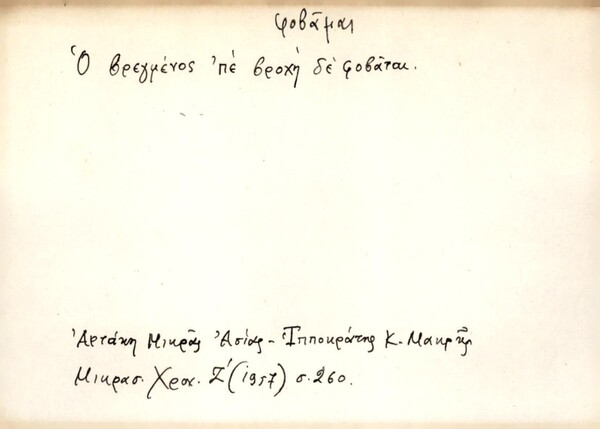 φοβᾶμαι
Ὁ βρεγμένος ἀπὲ βροχὴ δὲ φοβᾶται.
Ἀρτάκη Μικρᾶς Ἀσίας - Ἱπποκράτης Κ. Μακρῆς
Μικρασ. Χρον. Ζ´ (1957) σ. 260.